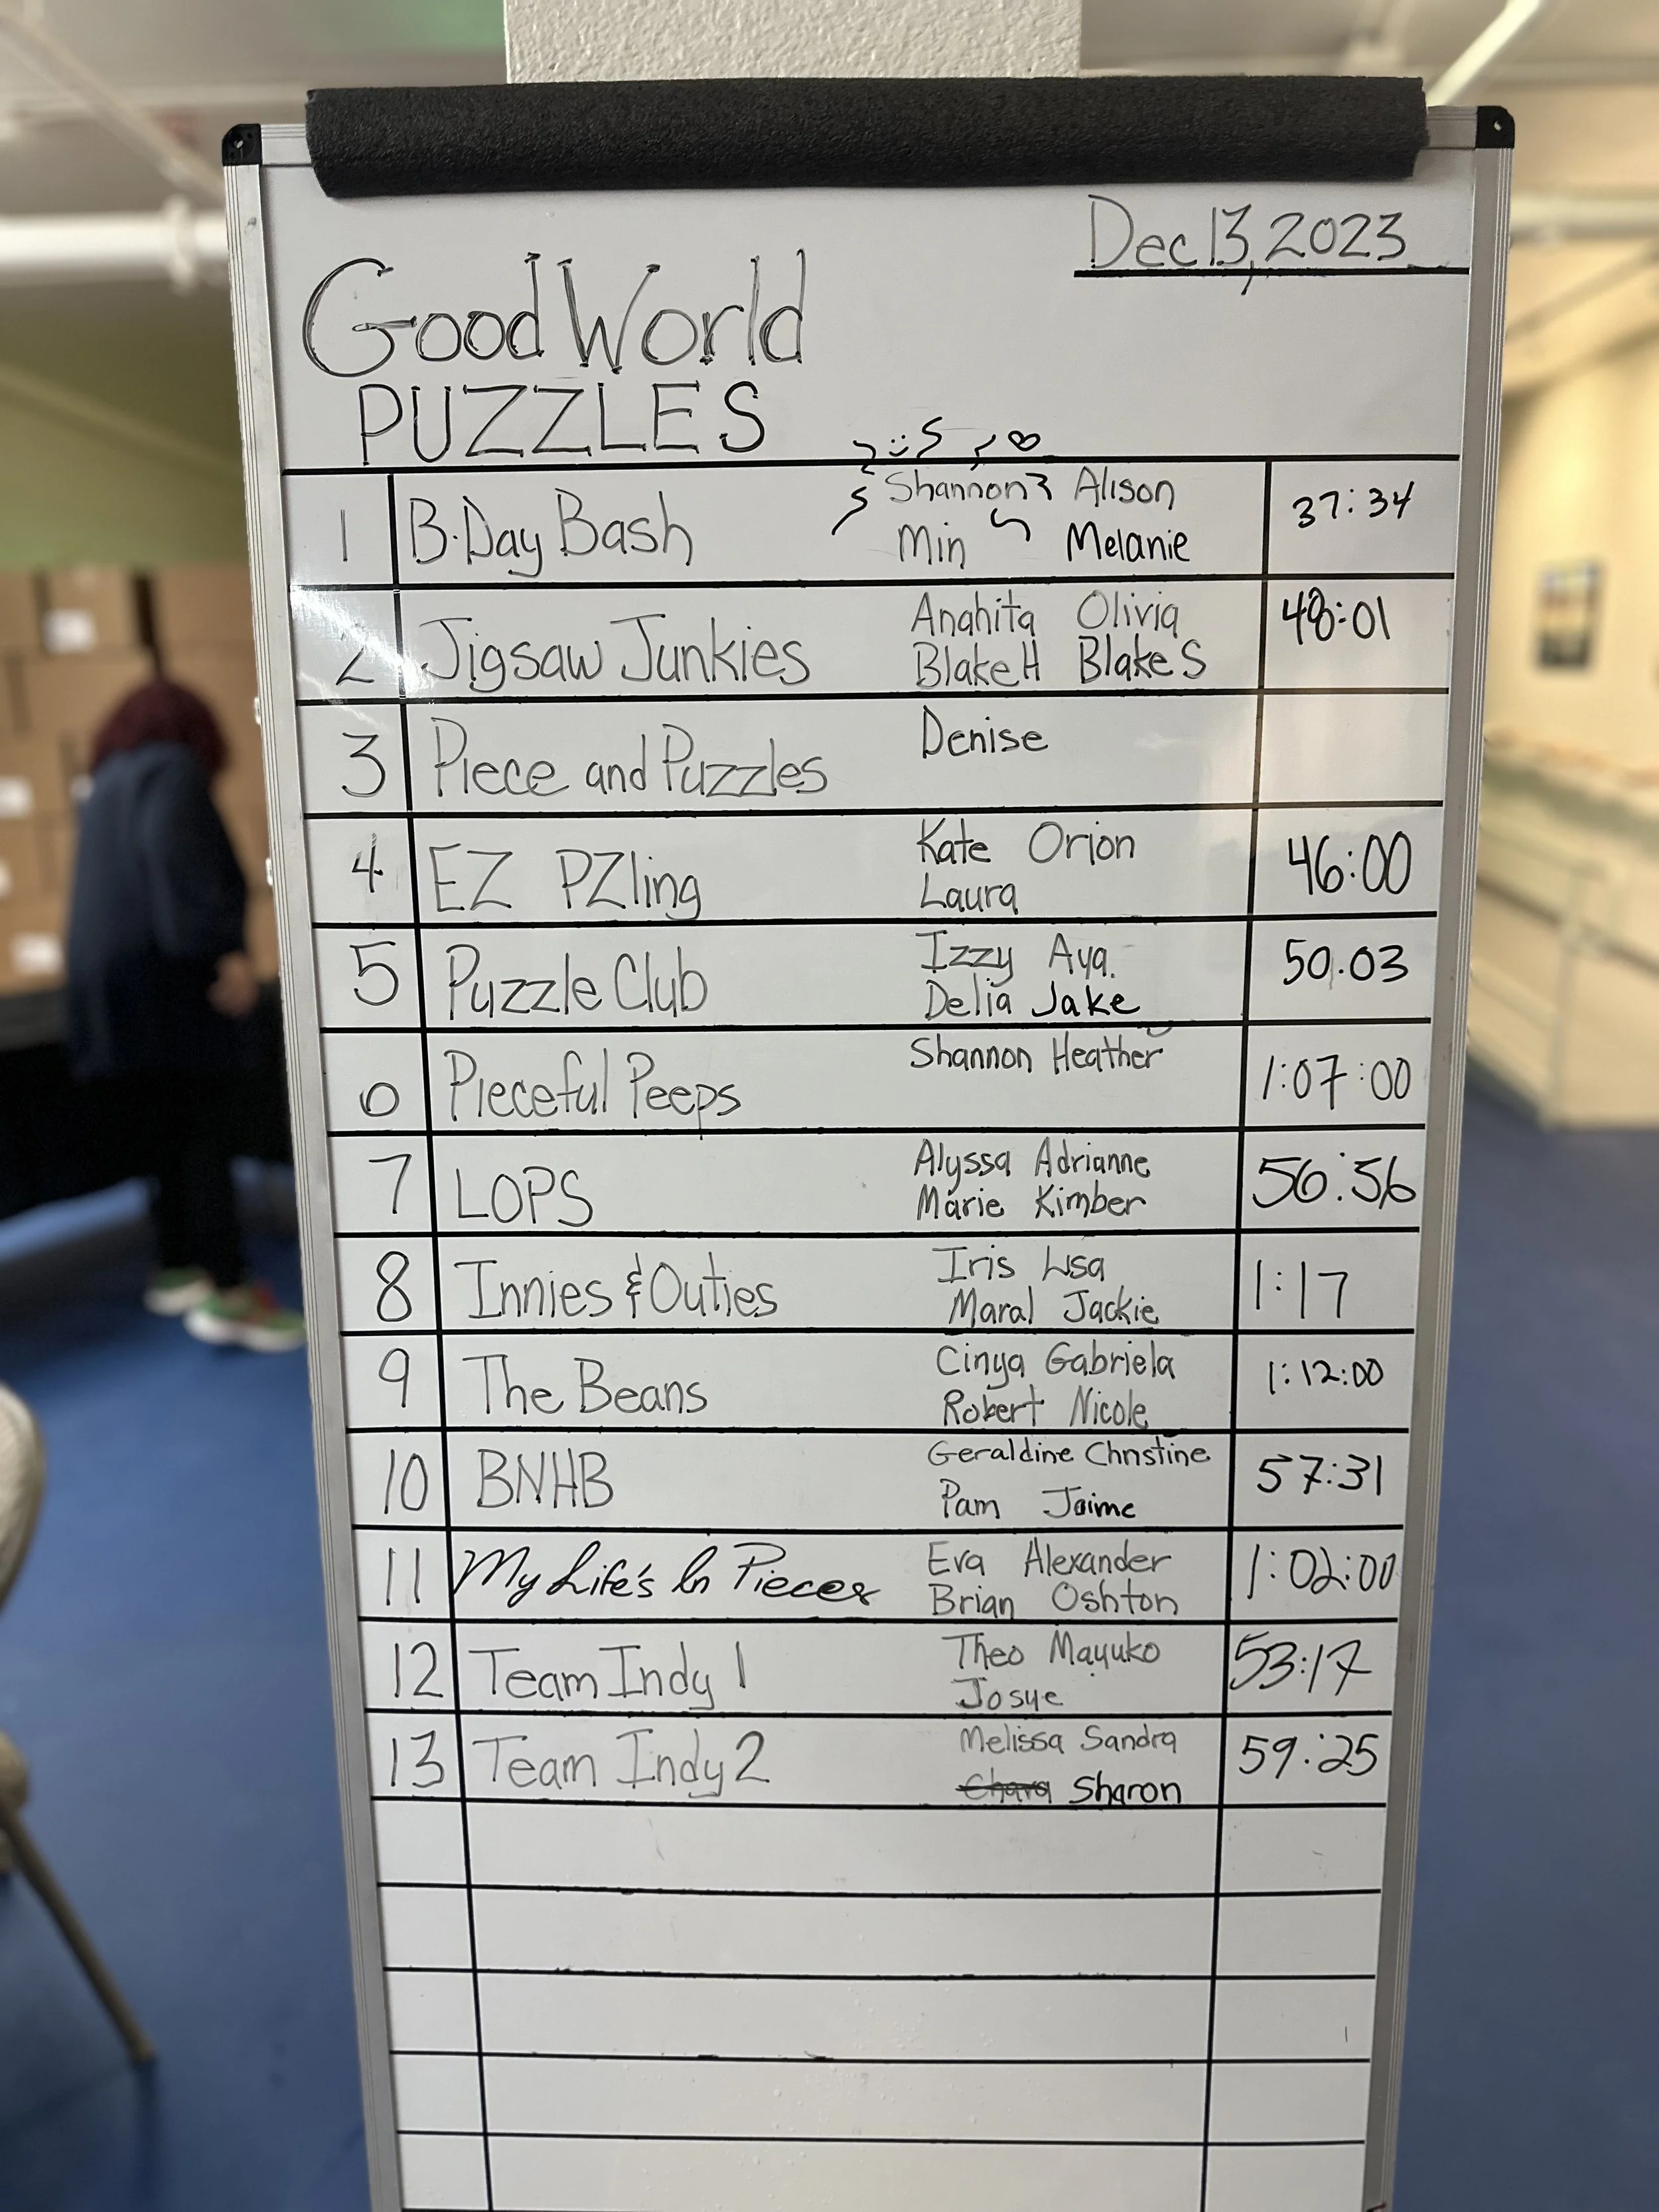 Dec 13, 2023
Good World
PUZZLES
1 B-Day Bash Shannon Alison 37:34
Min Melanie
2 Jigsaw Junkies Anahita Olivia 48:01
Blake H Blake S
3 Piece and Puzzles Denise
4 EZ PZling Kate Orion 46:00
Laura
5 Puzzle Club Izzy Aya 50.03
Delia Jake
Pieceful Peeps Shannon Heather 1:07:00
7 LOPS Alyssa Adrianne 56:56
Marie Kimber
8 Innies & Outies Iris Lisa 1:17
Maral Jackie
9 The Beans Cinya Gabriela 1:12:00
Robert Nicole
10 BNHB Geraldine Christine 57:31
Pam Jaime
11 My Life's In Pieces Eva Alexander 1:02:00
Brian Oshton
12 Team Indy 1 Theo Mayuko 53:17
Josye
13 Team Indy 2 Melissa Sandra 59:25
Sharon